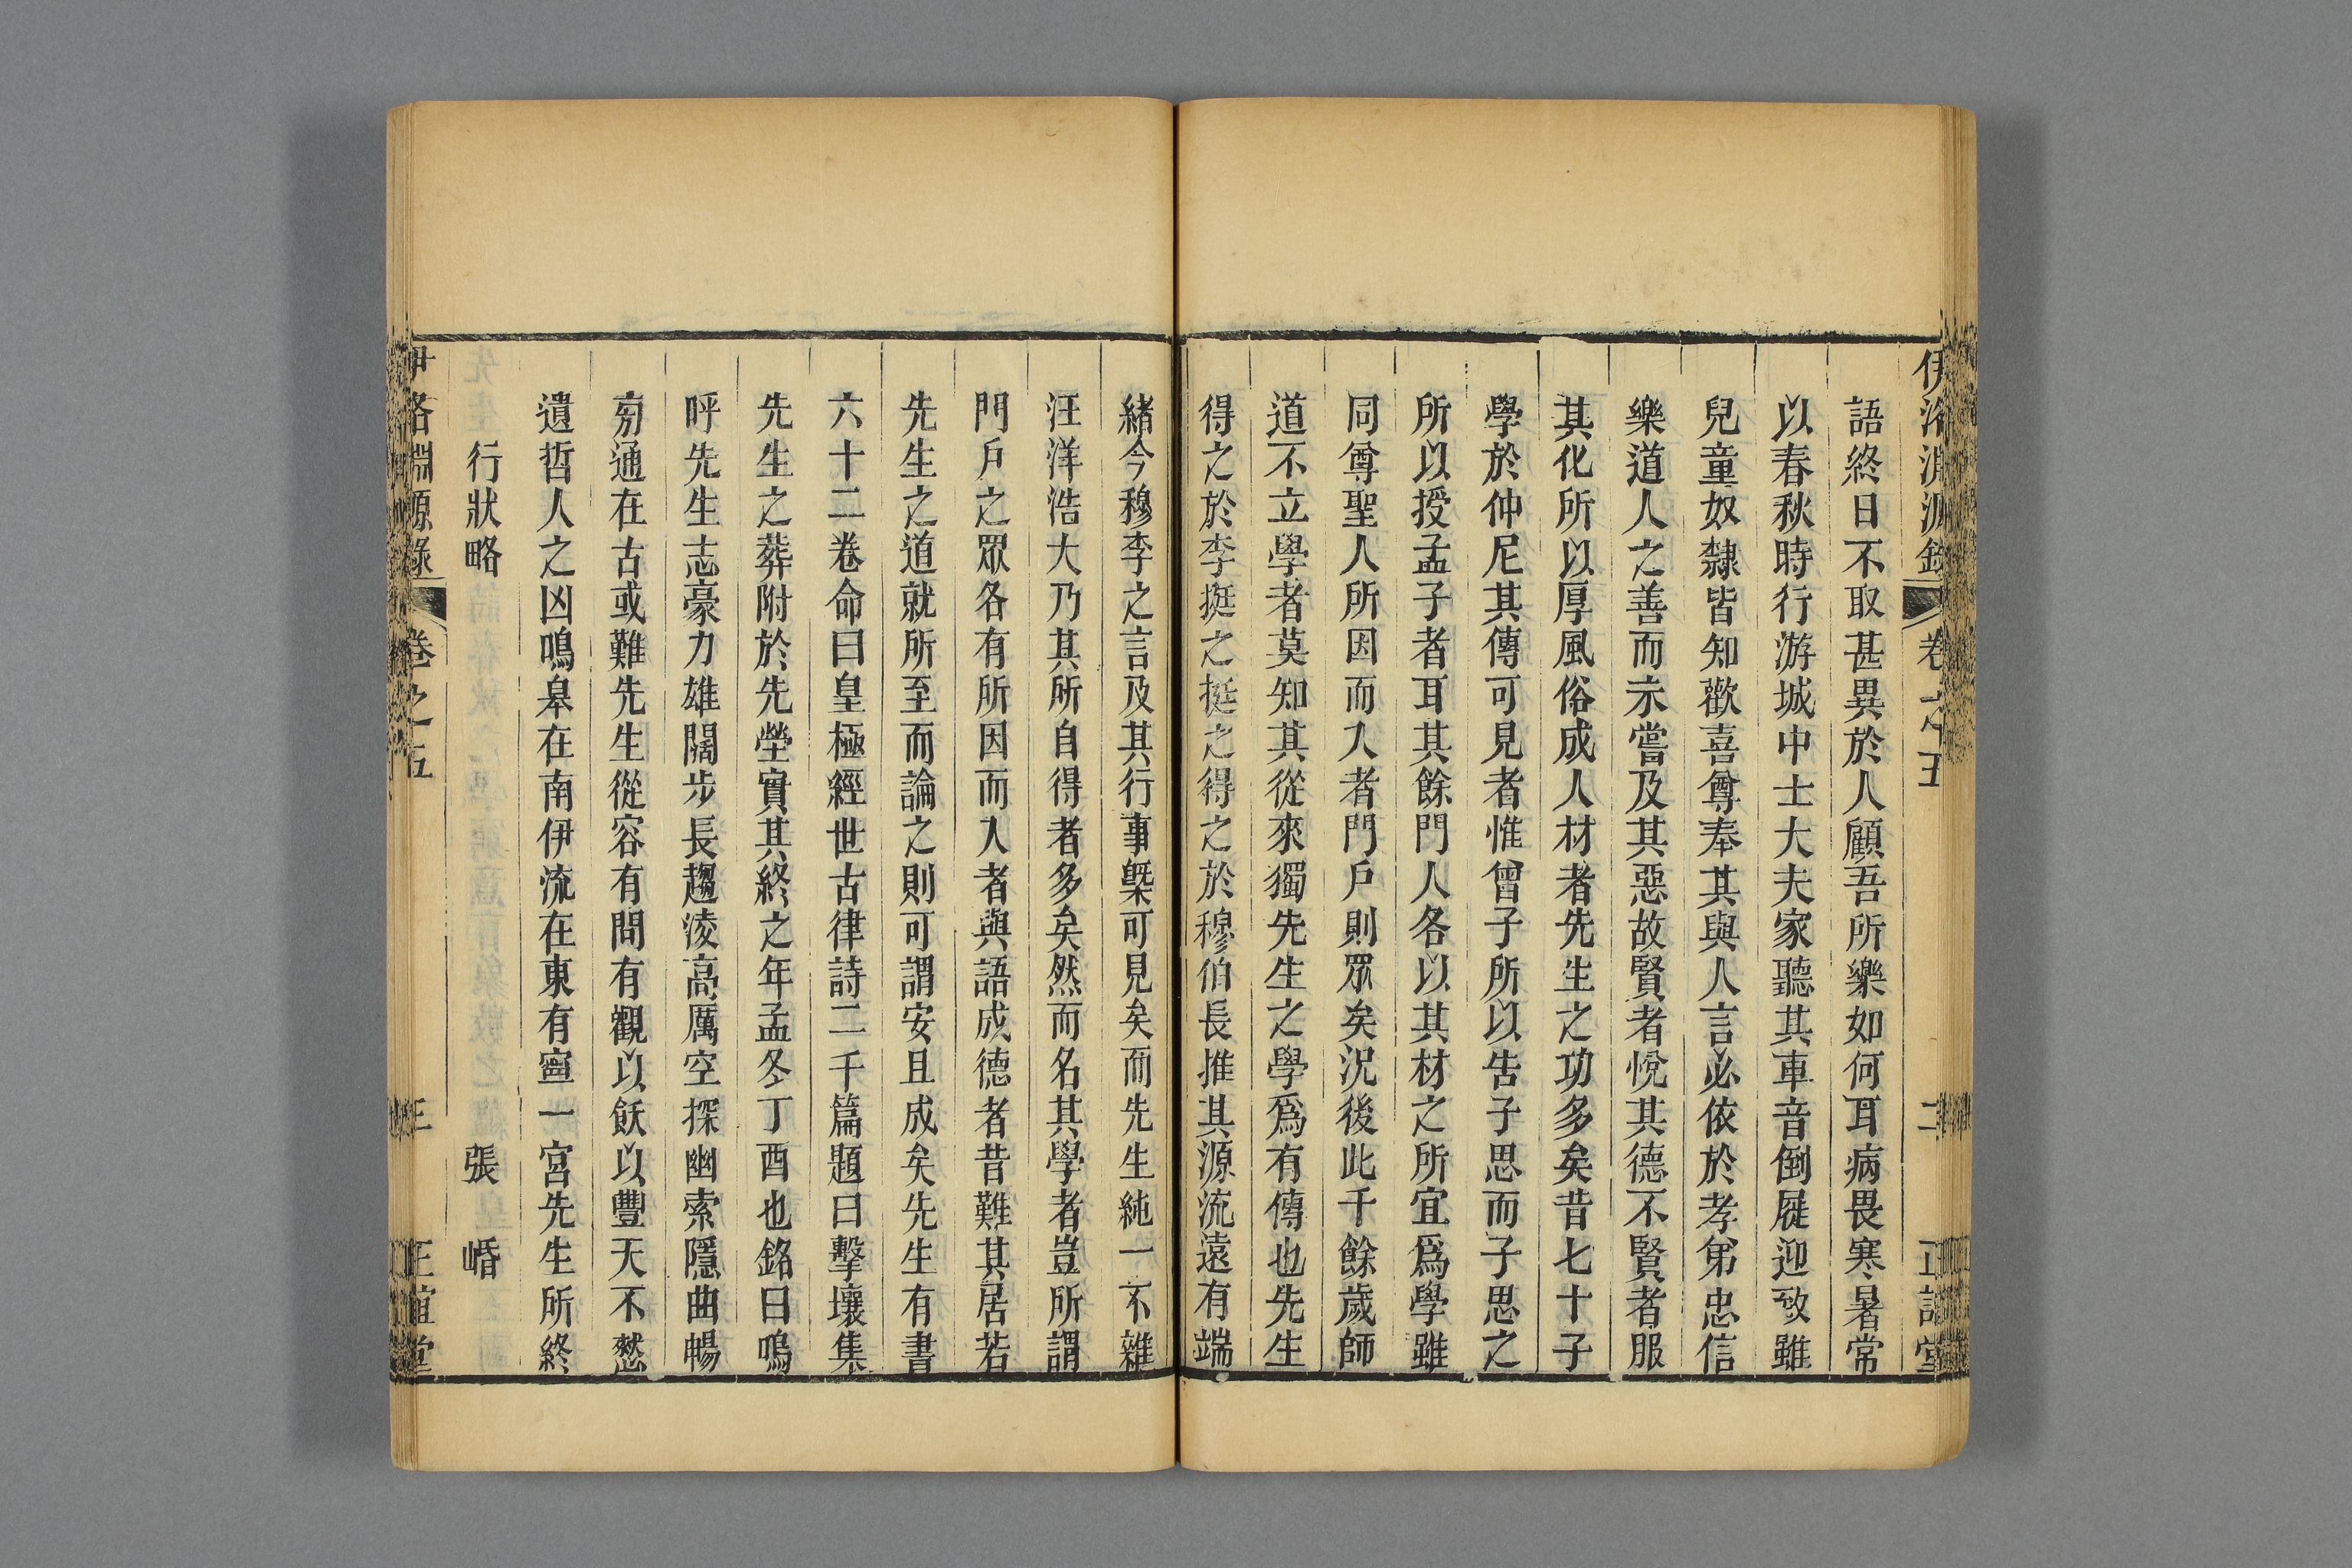 伊洛淵源錄 卷之五 二 正誼堂
語終日不取甚異於人顧吾所樂如何耳病畏寒暑常
以春秋時行游城中士大夫家聽其車音倒屣迎致雖
兒童奴隸皆知歡喜尊奉其與人言必依於孝弟忠信
樂道人之善而未嘗及其惡故賢者悅其德不賢者服
其化所以厚風俗成人材者先生之功多矣昔七十子
學於仲尼其傳可見者惟曾子所以告子思而子思之
所以授孟子者耳其餘門人各以其材之所宜爲學雖
同尊聖人所因而入者門戶則眾矣況後此千餘歲師
道不立學者莫知其從來獨先生之學爲有傳也先生
得之於李挺之挺之得之於穆伯長推其源流遠有端
緒今穆李之言及其行事槩可見矣而先生純一不雜
汪洋浩大乃其所自得者多矣然而名其學者豈所謂
門戶之眾各有所因而入者與語成德者昔難其居若
先生之道就所至而論之則可謂安且成矣先生有書
六十二卷命曰皇極經世古律詩二千篇題曰擊壤集
先生之葬附於先塋實其終之年孟冬丁酉也銘曰嗚
呼先生志豪力雄闊步長趨淩高厲空探幽索隱曲暢
旁通在古或難先生從容有問有觀以飫以豐天不憖
遺哲人之凶鳴皋在南伊流在東有寧一宮先生所終
行狀略 張㟭
伊洛淵源錄 卷之五 三 正誼堂